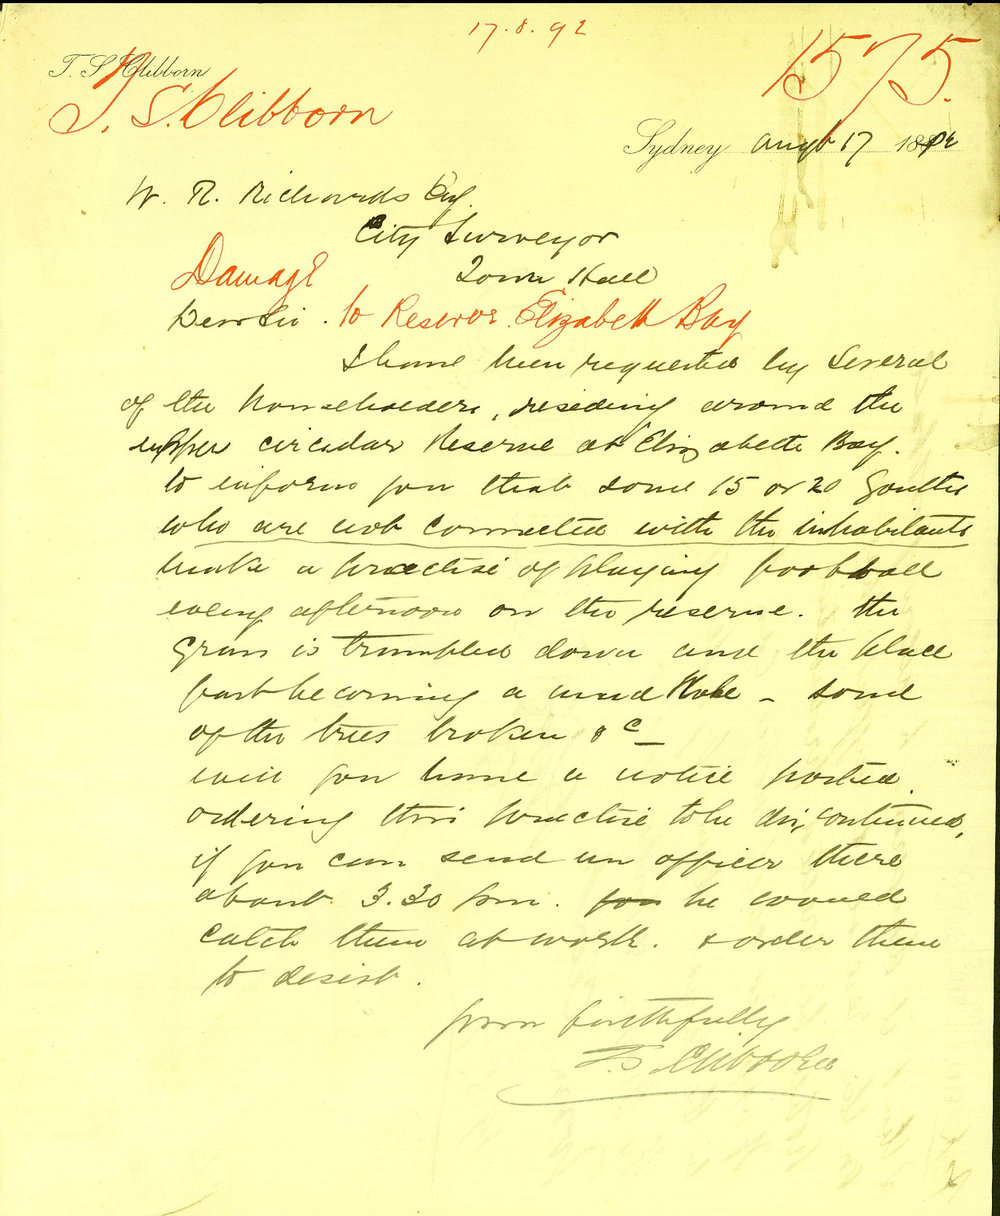 17.8.92
1575.
T. S. Clibborn
T. S. Clibborn
Sydney Augt 17 1892
W. R. Richards Esq.
City Surveyor
Damage Town Hall
Dear Sir. to Reserve Elizabeth Bay
I have been requested by several
of the householders, residing around the
upper circular Reserve at Elizabeth Bay.
to inform you that some 15 or 20 youths
who are not connected with the inhabitants
make a practise of playing football
every afternoon on the reserve. the
Grass is trampled down and the place
fast becoming a mud hole - some
of the trees broken &c
will you have a notice posted
ordering this practise to be discontinued,
if you can send an officer there
about 3.30 pm. you he would
catch them at work. & order them
to desist.
yours faithfully
T.S. Clibborn